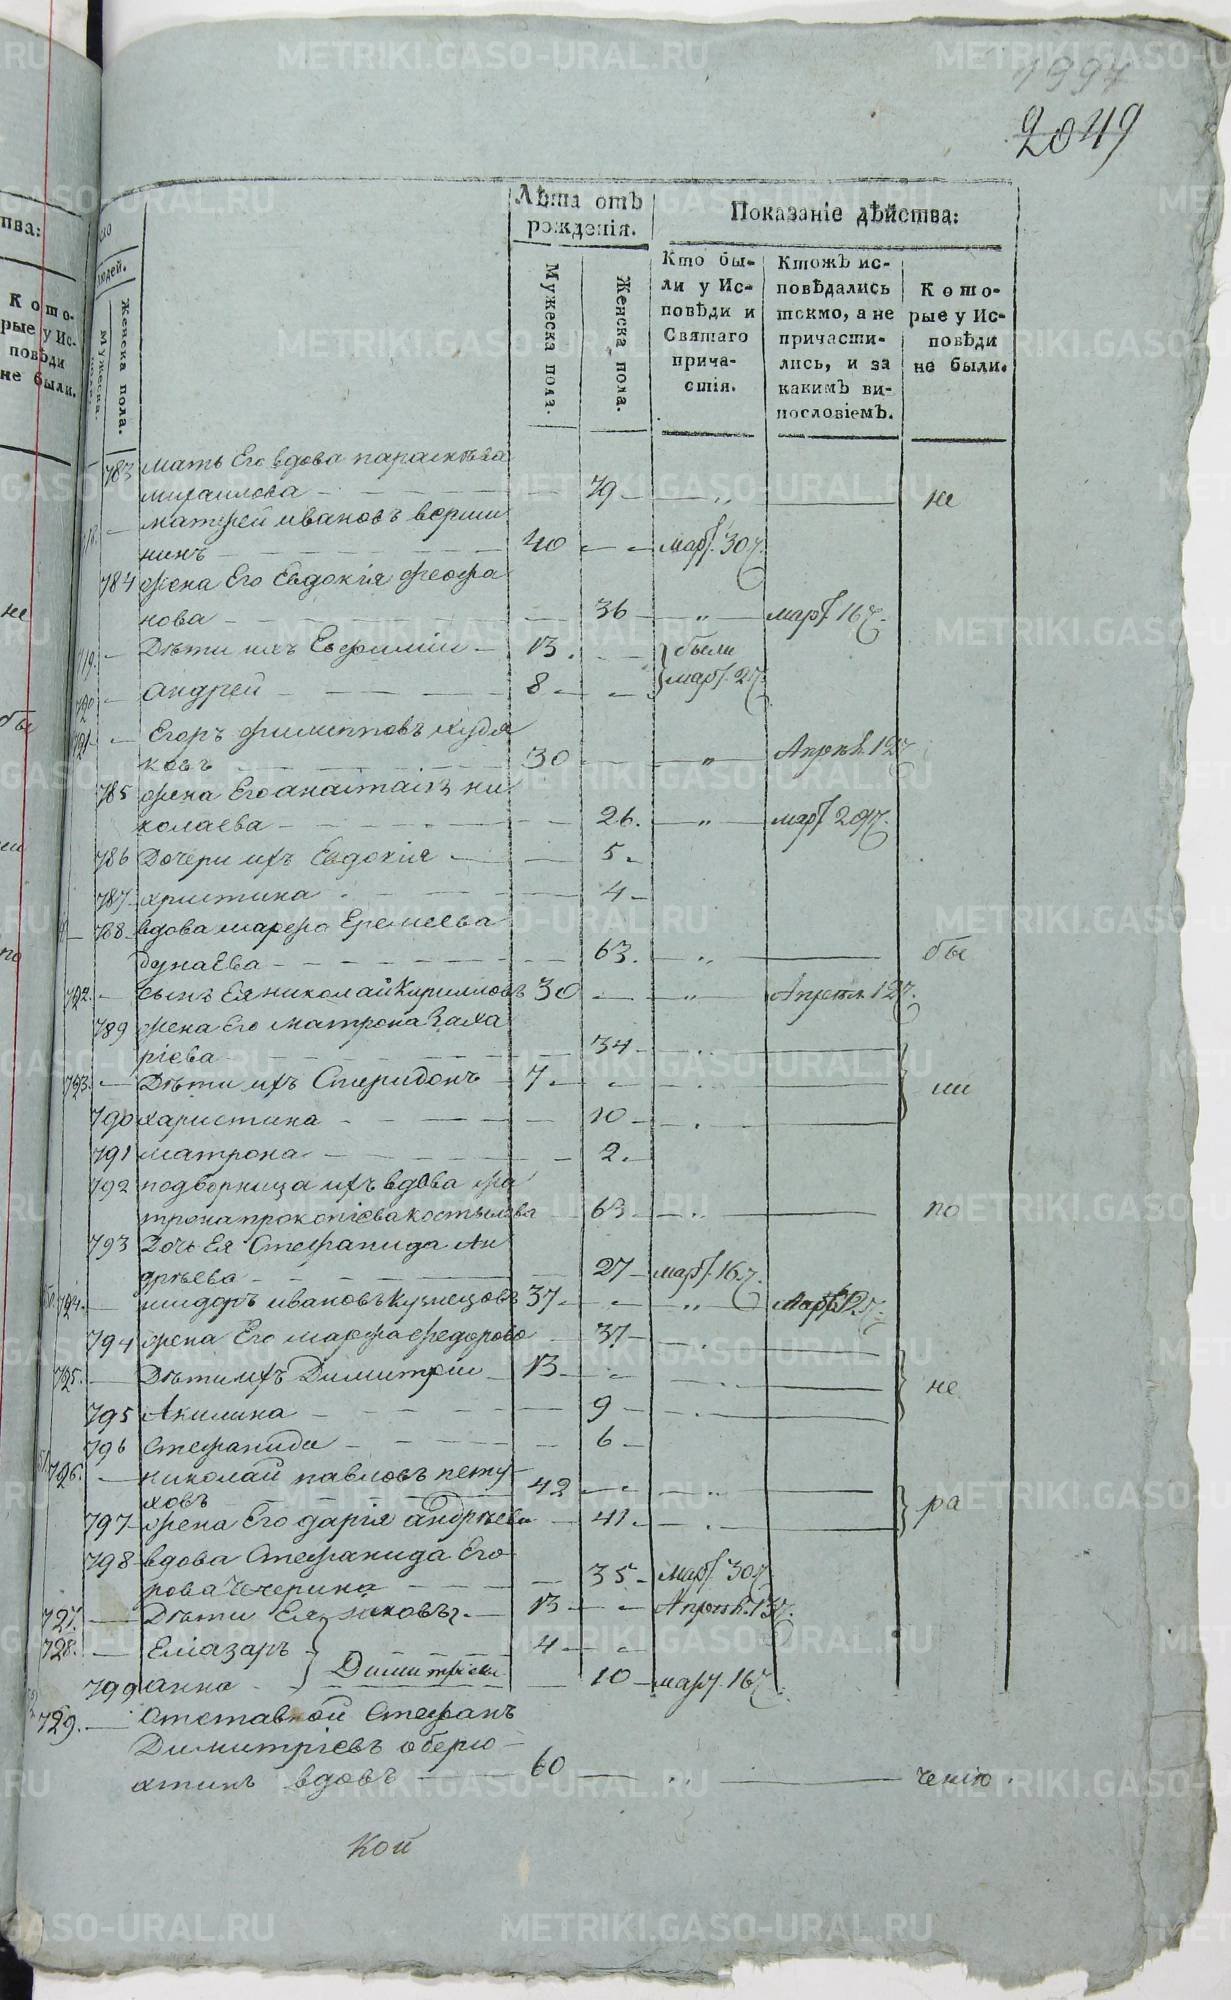 1997
2049
Лѣта отъ рожденія.
Показаніе дѣйства:
людей.
Мужеска
Женска пола.
Мужеска пола.
Женска пола.
Кто бы-
ли у Ис-
повѣди и
Святаго
прича-
стія.
Ктожъ ис-
повѣдались
токмо, а не
причасти-
лись, и за
какимъ ви-
нословіемъ.
Кото-
рые у Ис-
повѣди
не были.
783 мать Его вдова параскѣва
михаилова 79 „ не
матфей ивановъ верши
нинъ 40 март. 30 ч.
784 жена Его Евдокія феофа
нова 36 „ март 16 ч.
719. Дѣти ихъ Евфимій 13. были
720 андрей 8 март. 27.
721 Егоръ филипповъ худя
ковъ 30 „ Апрѣл. 12 ч.
785 жена Его анастасія ни
колаева 26. „ март 29 ч.
786 Дочери ихъ Евдокія 5
787 христина 4
788 вдова марфа Еремеева
дунаева 63. „ бы
722. сынъ Ея николай Кириловъ 30 „ Апрѣл. 12 ч.
789 жена Его матрона Заха
ріева 34
723. Дѣти ихъ Спиридонъ 7 ли
790 харистина 10
791 матрона 2
792 подворница ихъ вдова ма
трона прокопіева костылева 63 „ по
793 Дочь Ея Стефанида Ан
дрѣева 27 март. 16 ч.
724. исидоръ ивановъ Кузнецовъ 37 „ март. 12 ч.
794 жена Его марфа федорова 37
725. Дѣти ихъ Димитрій 13 не
795 Акилина 9
796 стефанида 6
726. николай павловъ пету
ховъ 42 „ ра
797 жена Его дарія андрѣева 41
798 вдова Стефанида Его
рова Чечерина 35 март 30 ч.
727. Дѣти Ея яковъ 13 Апрѣл. 13 ч.
728. Еліазаръ 4
799 анна Димитріевы 10 март. 16 ч.
729. отставной Стефанъ
Димитріевъ оберю
хтинъ вдовъ 60 „ ченію.
Кой